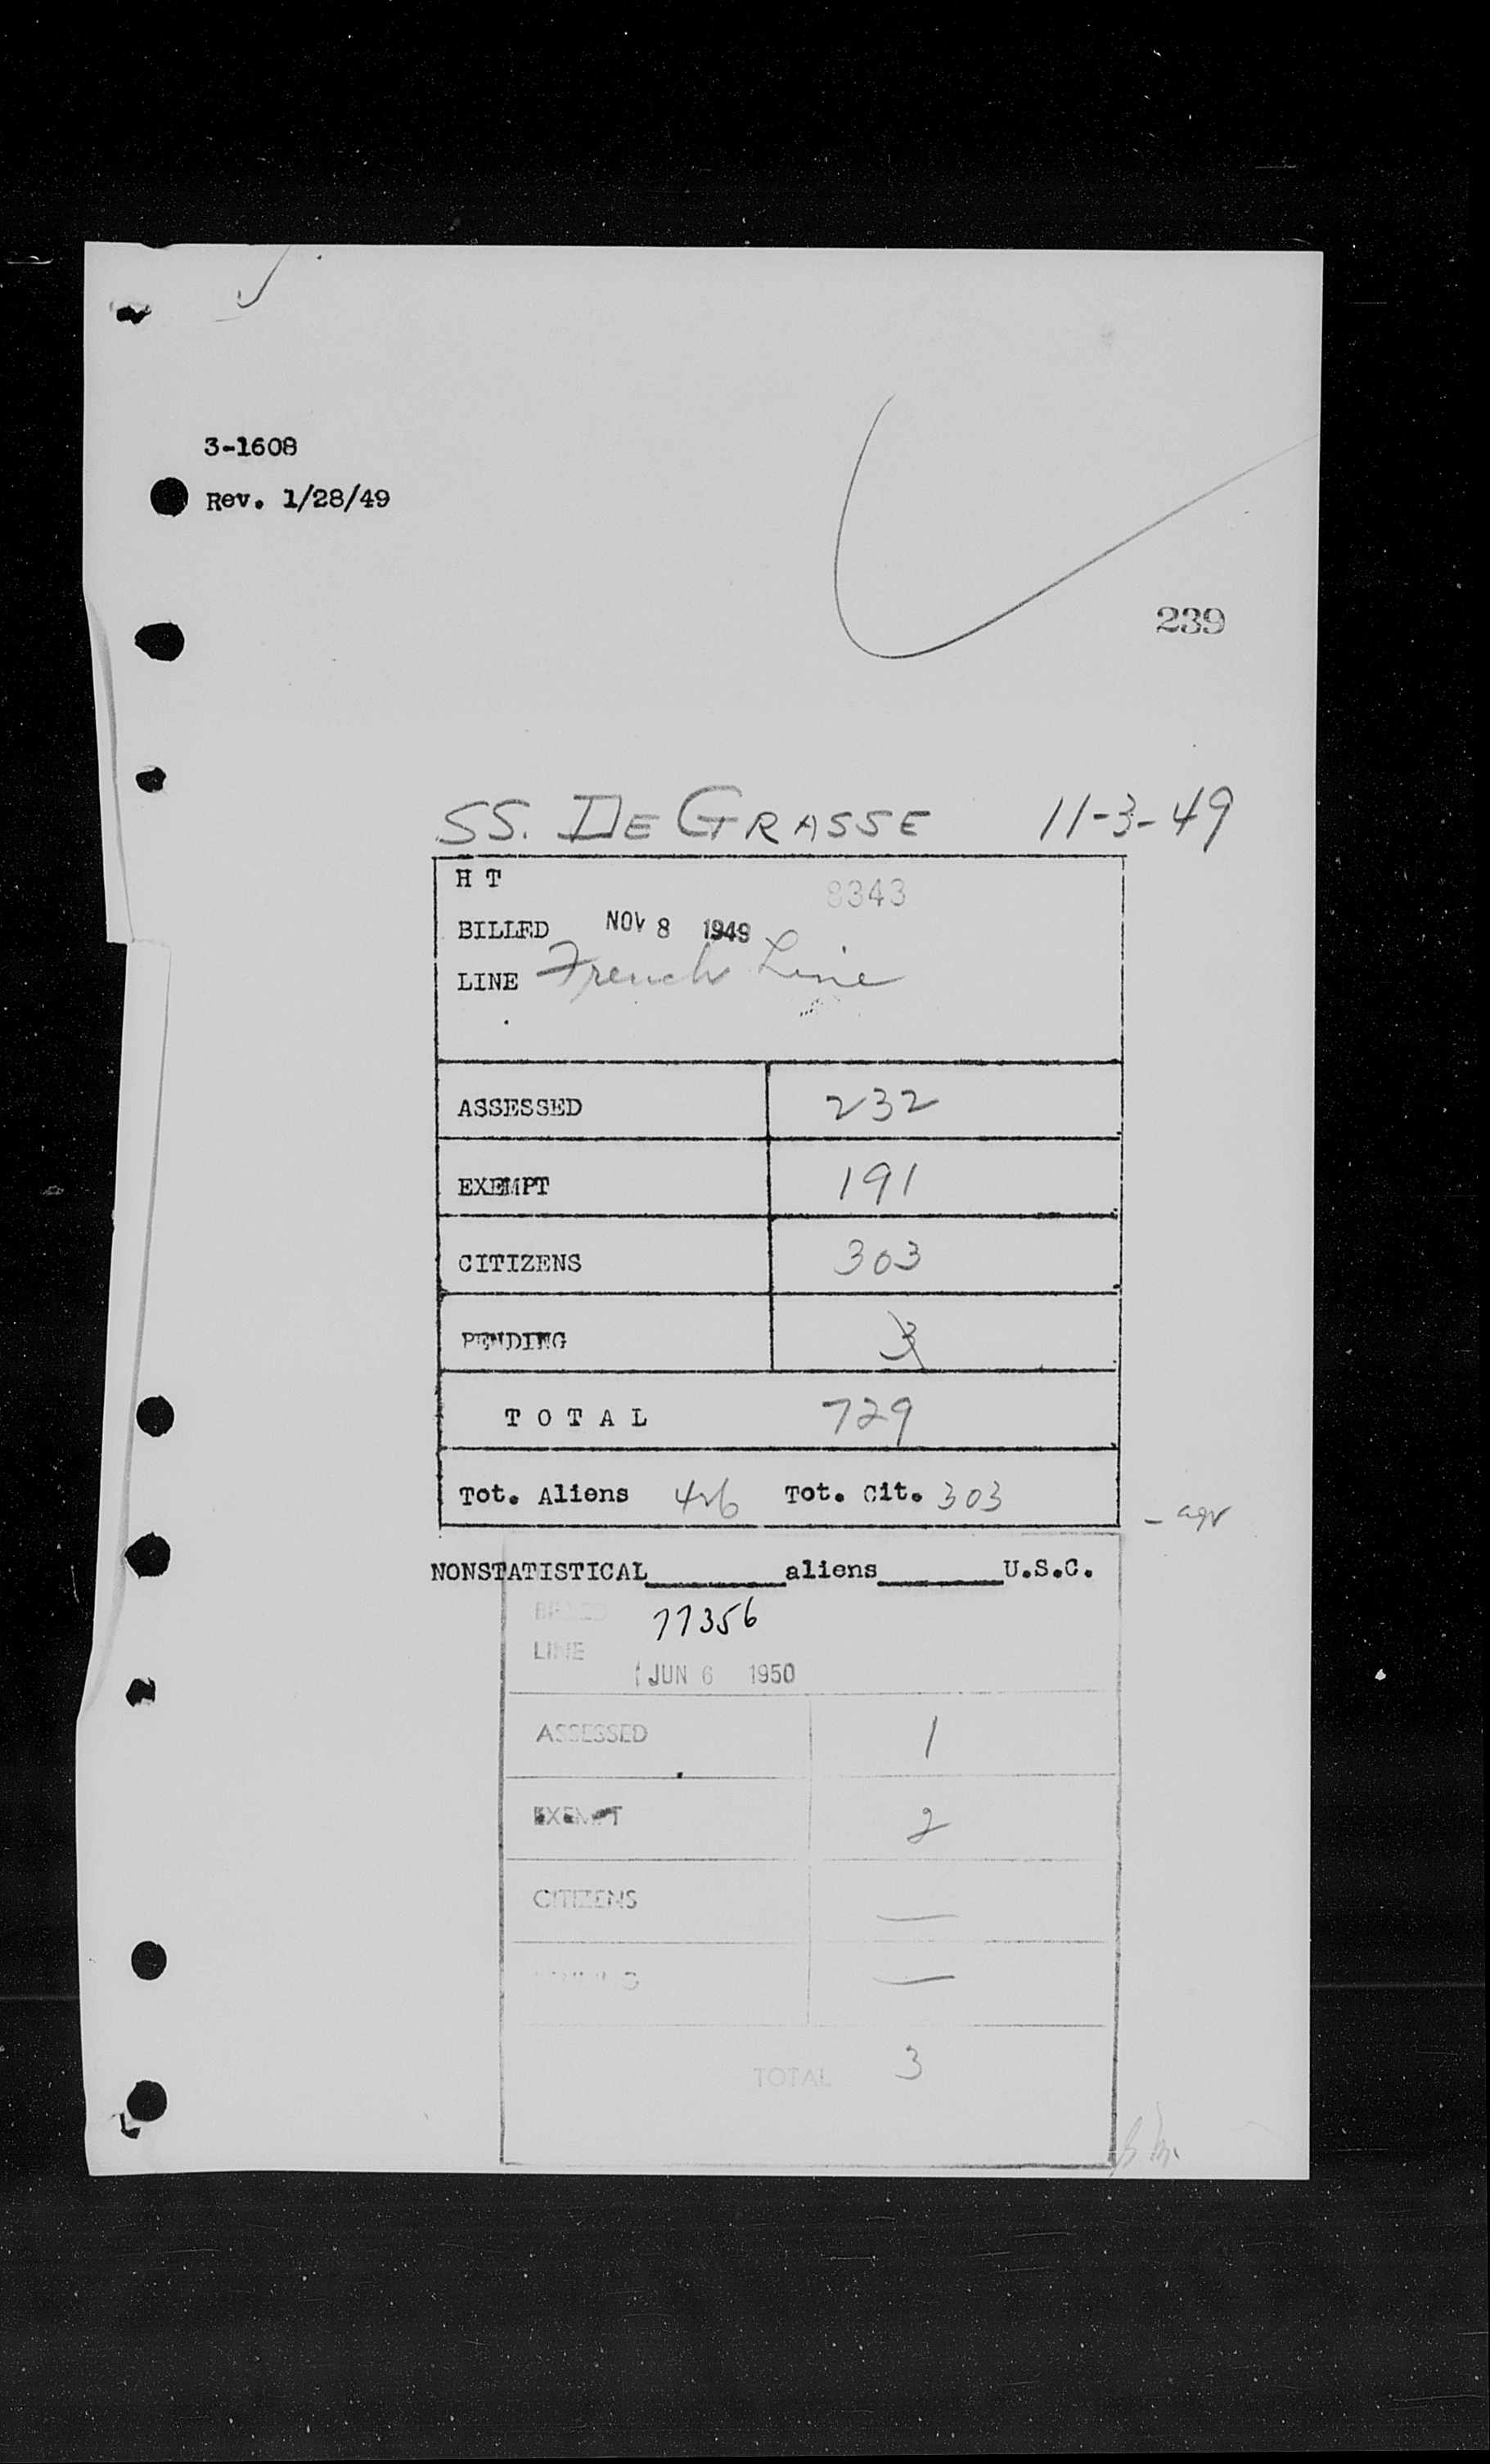 3-1608
Rev. 1/28/49
239
SS. DE GRASSE 11-3-49
H T 8343
BILLED NOV 8 1949
LINE French Line
ASSESSED 232
EXEMPT 191
CITIZENS 303
PENDING 3
TOTAL 729
Tot. Aliens 426 Tot. Cit. 303
NONSTATISTICAL______aliens______U.S.C.
BILLED 77356
LINE
JUN 6 1950
ASSESSED 1
EXEMPT 2
CITIZENS —
—
TOTAL 3